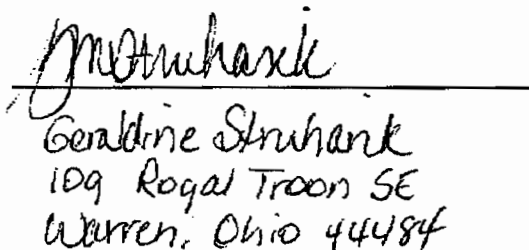 GMStruharik
Geraldine Struharik
109 Royal Troon SE
Warren, Ohio 44484